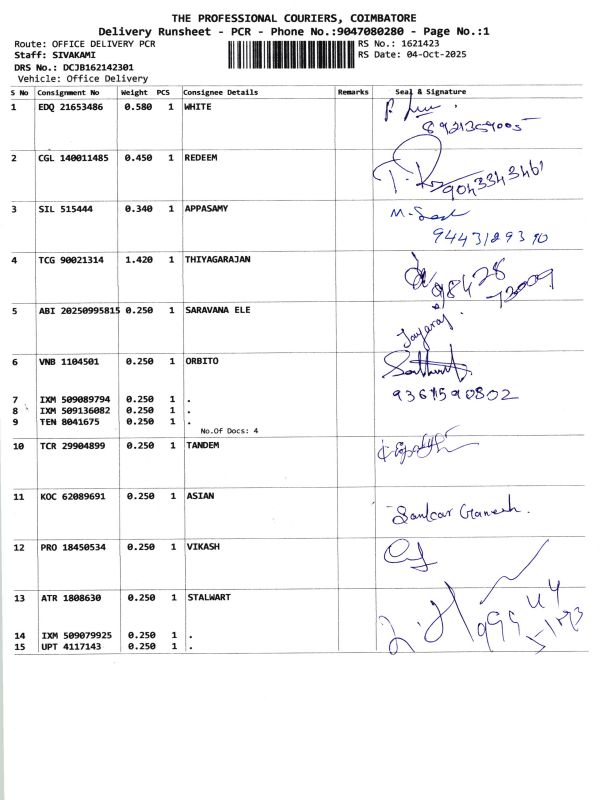 THE PROFESSIONAL COURIERS, COIMBATORE
Delivery Runsheet - PCR - Phone No.:9047080280 - Page No.:1
Route: OFFICE DELIVERY PCR
RS No.: 1621423
Staff: SIVAKAMI
RS Date: 04-Oct-2025
DRS No.: DCJB162142301
Vehicle: Office Delivery
S No Consignment No Weight PCS Consignee Details Remarks Seal & Signature
1 EDQ 21653486 0.580 1 WHITE
2 CGL 140011485 0.450 1 REDEEM
9043343461
3 SIL 515444 0.340 1 APPASAMY
9443129390
4 TCG 90021314 1.420 1 THIYAGARAJAN
98428
73009
5 ABI 20250995815 0.250 1 SARAVANA ELE
Jayaraj.
6 VNB 1104501 0.250 1 ORBITO
7 IXM 509089794 0.250 1 .
9361590802
8 IXM 509136082 0.250 1 .
9 TEN 8041675 0.250 1 .
No.Of Docs: 4
10 TCR 29904899 0.250 1 TANDEM
11 KOC 62089691 0.250 1 ASIAN
Sankar Ganesh.
12 PRO 18450534 0.250 1 VIKASH
13 ATR 1808630 0.250 1 STALWART
14 IXM 509079925 0.250 1 .
15 UPT 4117143 0.250 1 .